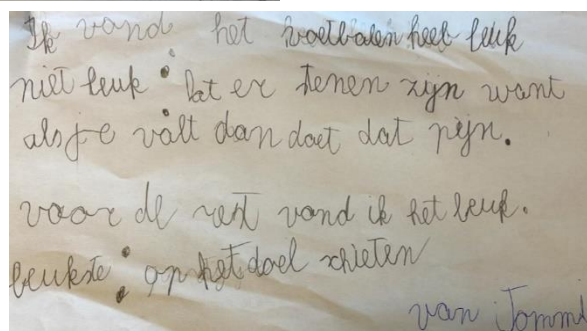 Ik vond het voetbalen heel leuk
niet leuk: dat er stenen zijn want
als je valt dan doet dat pijn.
voor de rest vond ik het leuk.
leukste: op het doel schieten
van Jommi